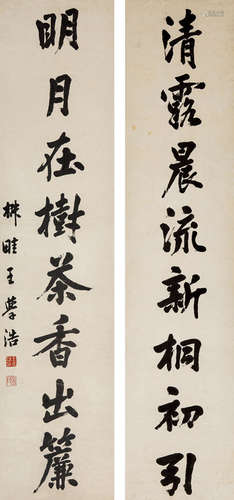 清露晨流新桐初引
明月在樹茶香出簾
椒畦王學浩